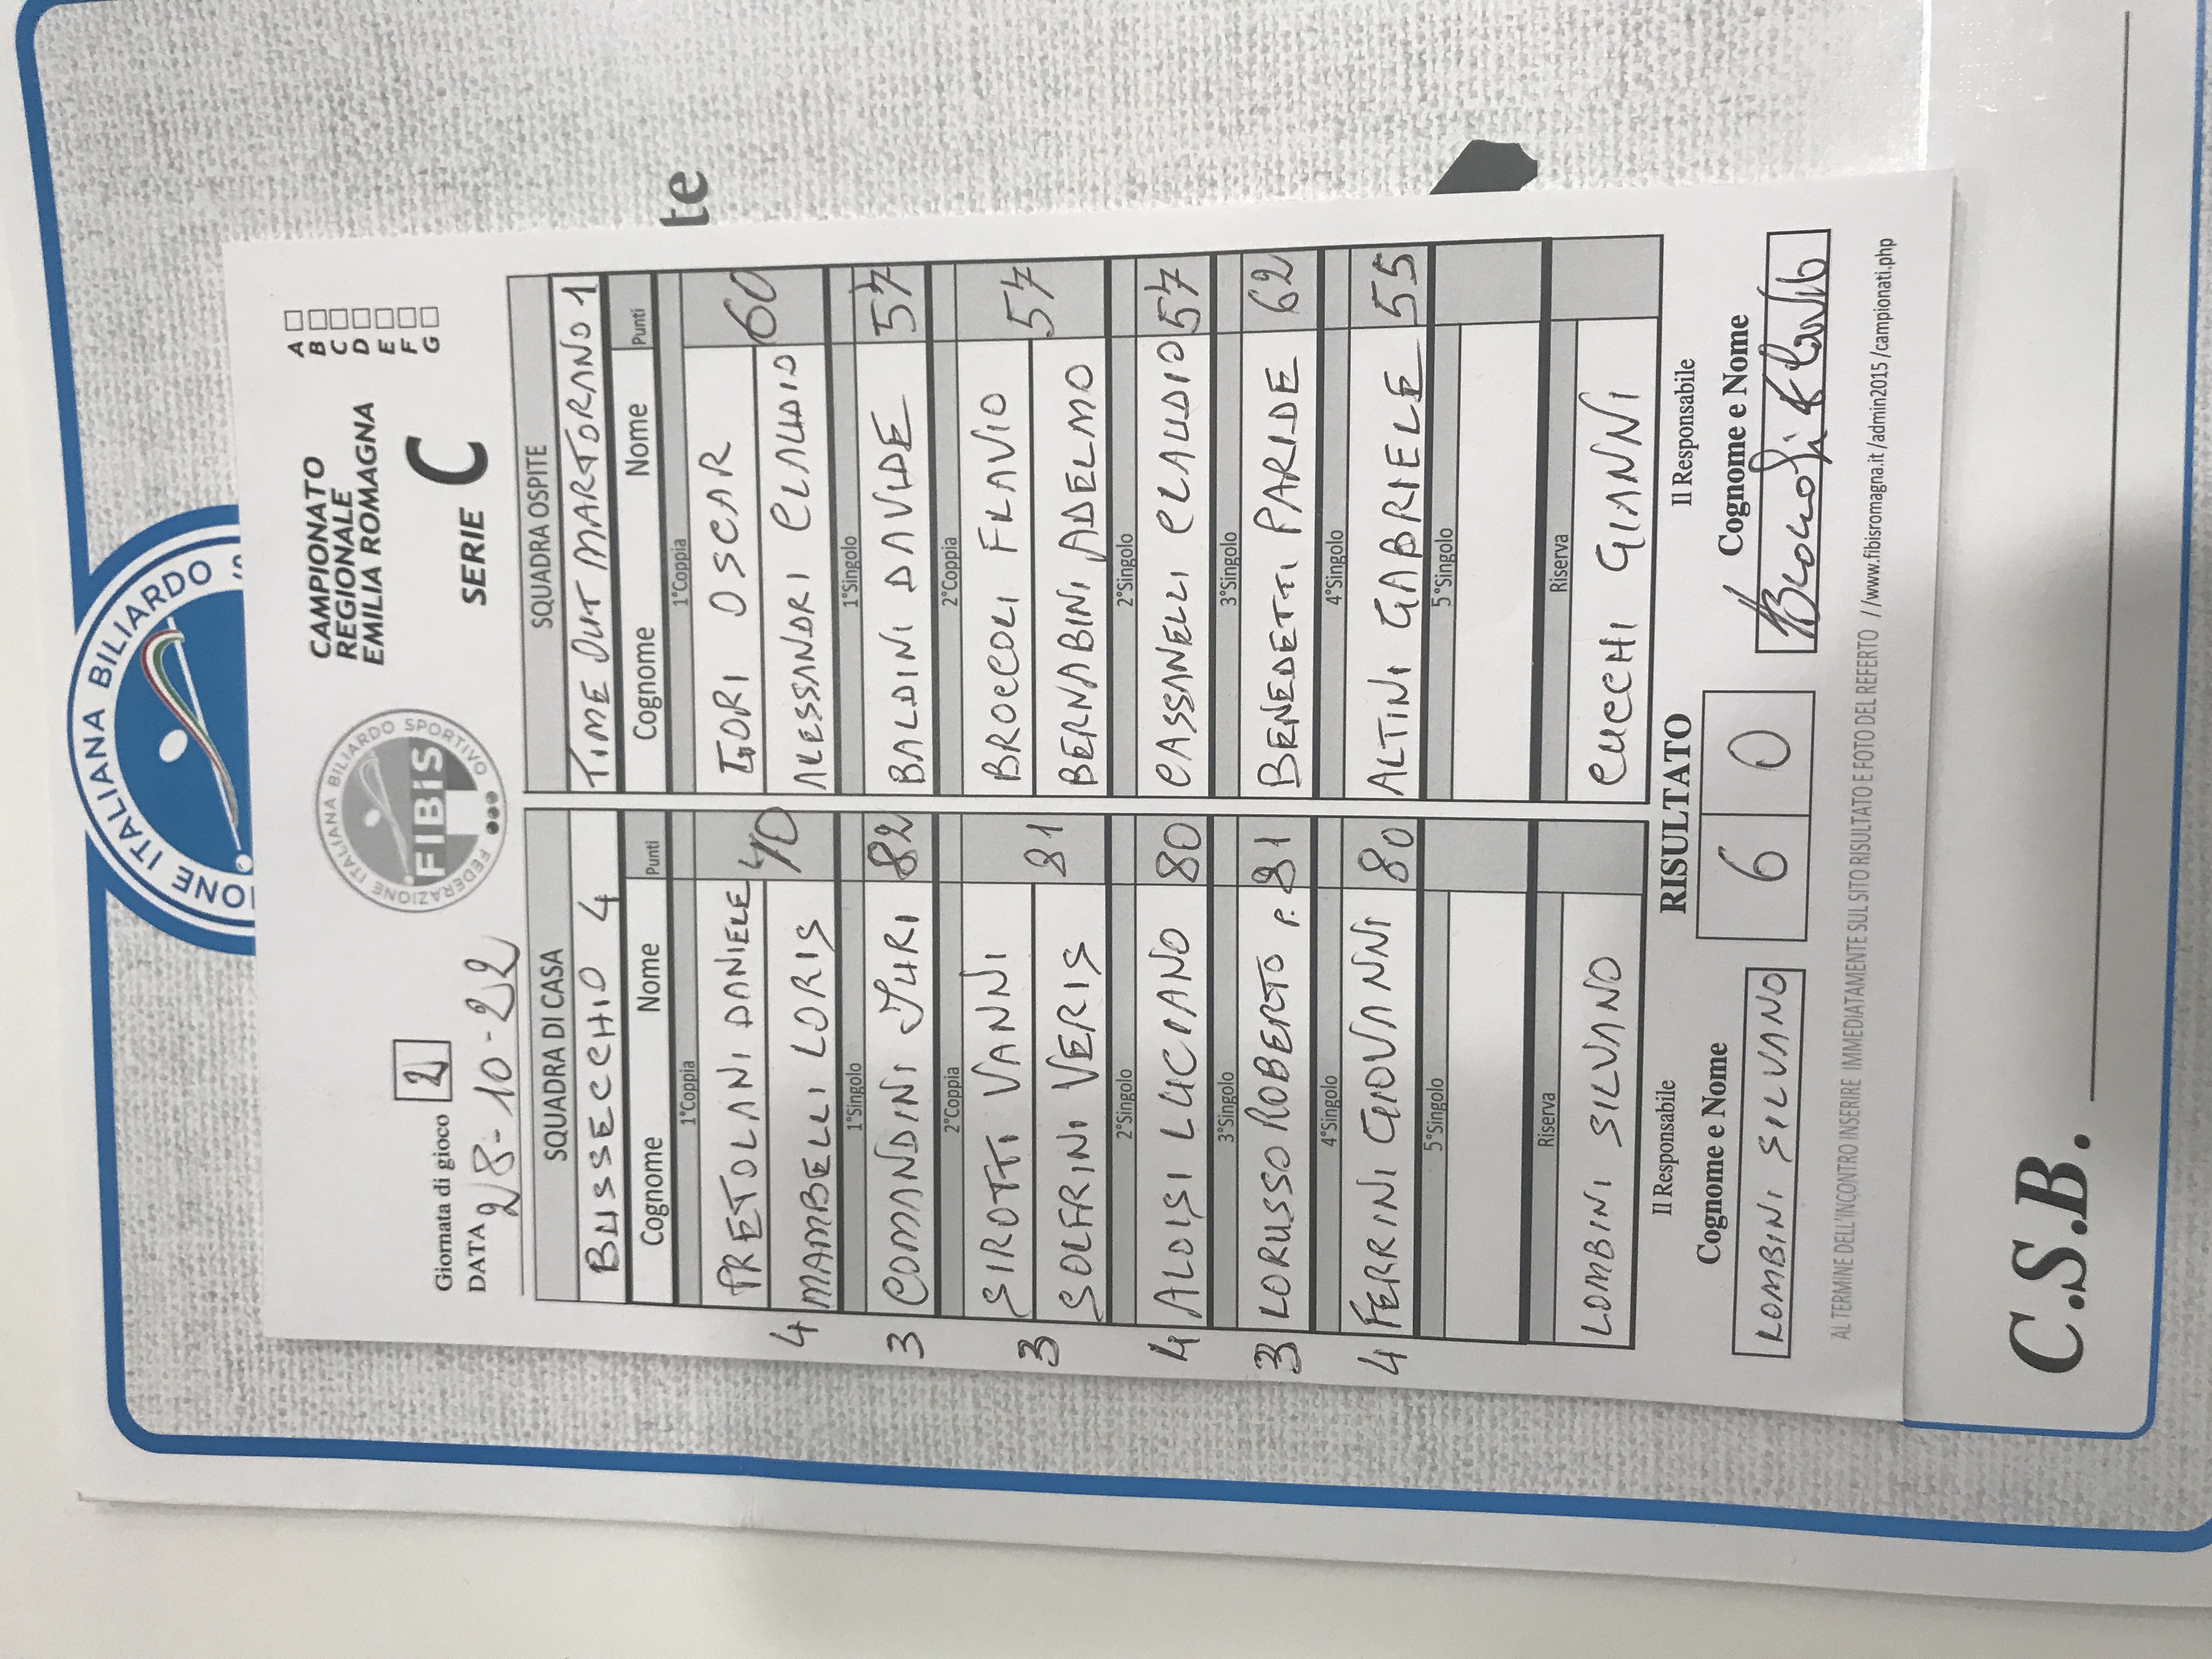 ONE ITALIANA BILIARDO
te
FEDERAZIONE ITALIANA BILIARDO SPORTIVO
FIBIS
CAMPIONATO
REGIONALE
EMILIA ROMAGNA
SERIE C
A
B
C
D
E
F
G
Giornata di gioco 2
DATA 28-10-22
SQUADRA DI CASA SQUADRA OSPITE
BUSSECCHIO 4 TIME OUT MARTORANO 1
Cognome Nome Punti Cognome Nome Punti
1°Coppia 1°Coppia
PRETOLANI DANIELE GORI OSCAR
4 MAMBELLI LORIS 70 ALESSANDRI CLAUDIO 60
1°Singolo 1°Singolo
3 COMANDINI JURI 82 BALDINI DAVIDE 57
2°Coppia 2°Coppia
SIROTTI VANNI BROCCOLI FLAVIO
3 SOLFRINI VERIS 81 BERNABINI ADELMO 57
2°Singolo 2°Singolo
4 ALOISI LUCIANO 80 CASSANELLI CLAUDIO 57
3°Singolo 3°Singolo
3 LORUSSO ROBERTO P. 81 BENEDETTI PARIDE 62
4°Singolo 4°Singolo
4 FERRINI GIOVANNI 80 ALTINI GABRIELE 55
5°Singolo 5°Singolo
Riserva Riserva
LOMBINI SILVANO CUCCHI GIANNI
Il Responsabile RISULTATO Il Responsabile
Cognome e Nome 6 0 Cognome e Nome
LOMBINI SILVANO
AL TERMINE DELL'INCONTRO INSERIRE IMMEDIATAMENTE SUL SITO RISULTATO E FOTO DEL REFERTO //www.fibisromagna.it /admin2015 /campionati.php
C.S.B.